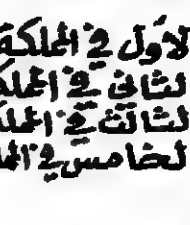 لأول في المملكة
لثاني في المملك
لثالث في المملك
لخامس في الم